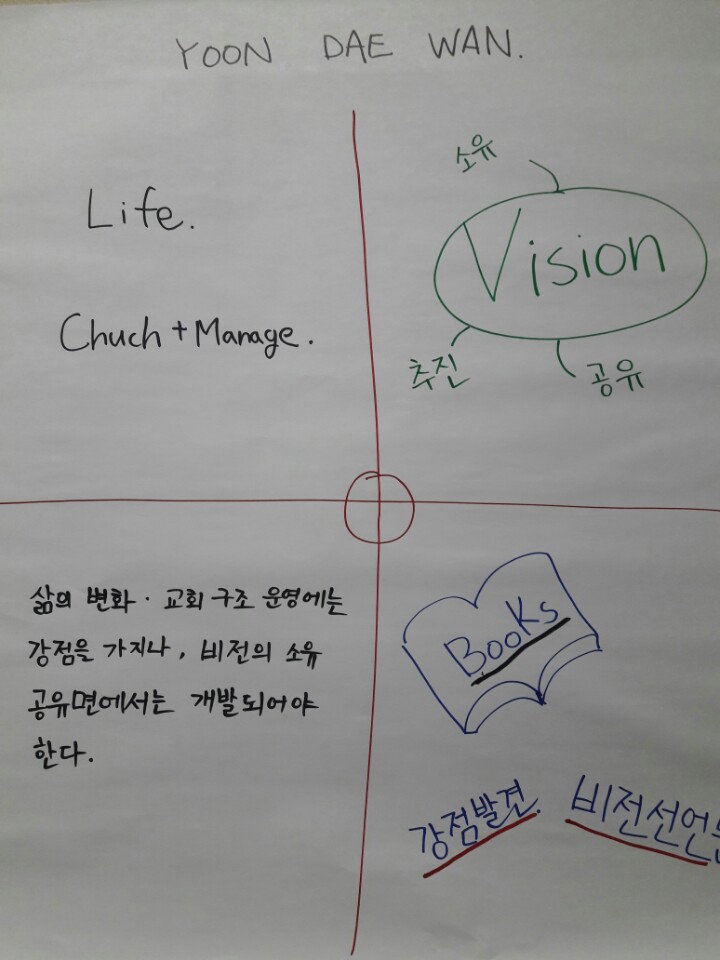 YOON DAE WAN.
Life.
Chuch + Manage.
소유
Vision
추진
공유
삶의 변화 · 교회 구조 운영에는
강점을 가지나, 비전의 소유
공유면에서는 개발되어야
한다.
Books
강점발견.
비전선언